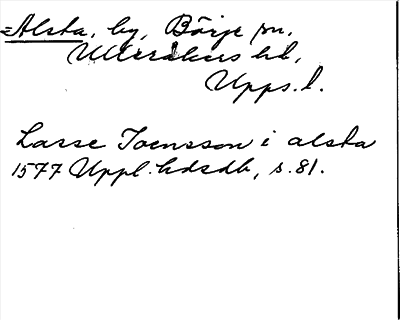 =Alsta, by, Börje sn.
Ulleråkers hd,
Upps. l.
Lasse Joensson i alsta
1577 Uppl. hdsdb, s. 81.